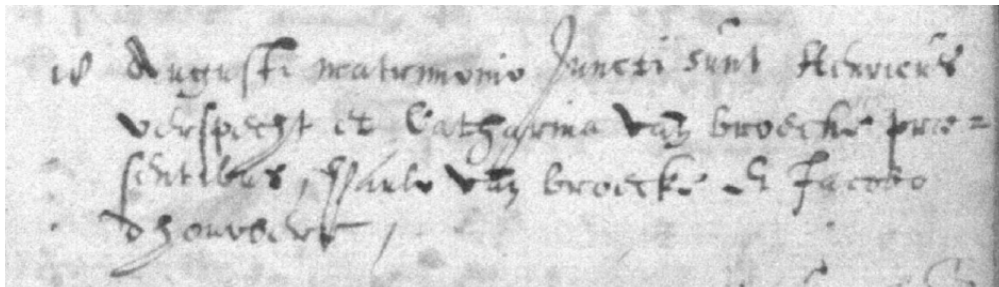 18 Augusti matrimonio Juncti sunt Henricus
verspecht et Catharina van broecke prae=
sentibus, Paulo van broecke et Jacobo